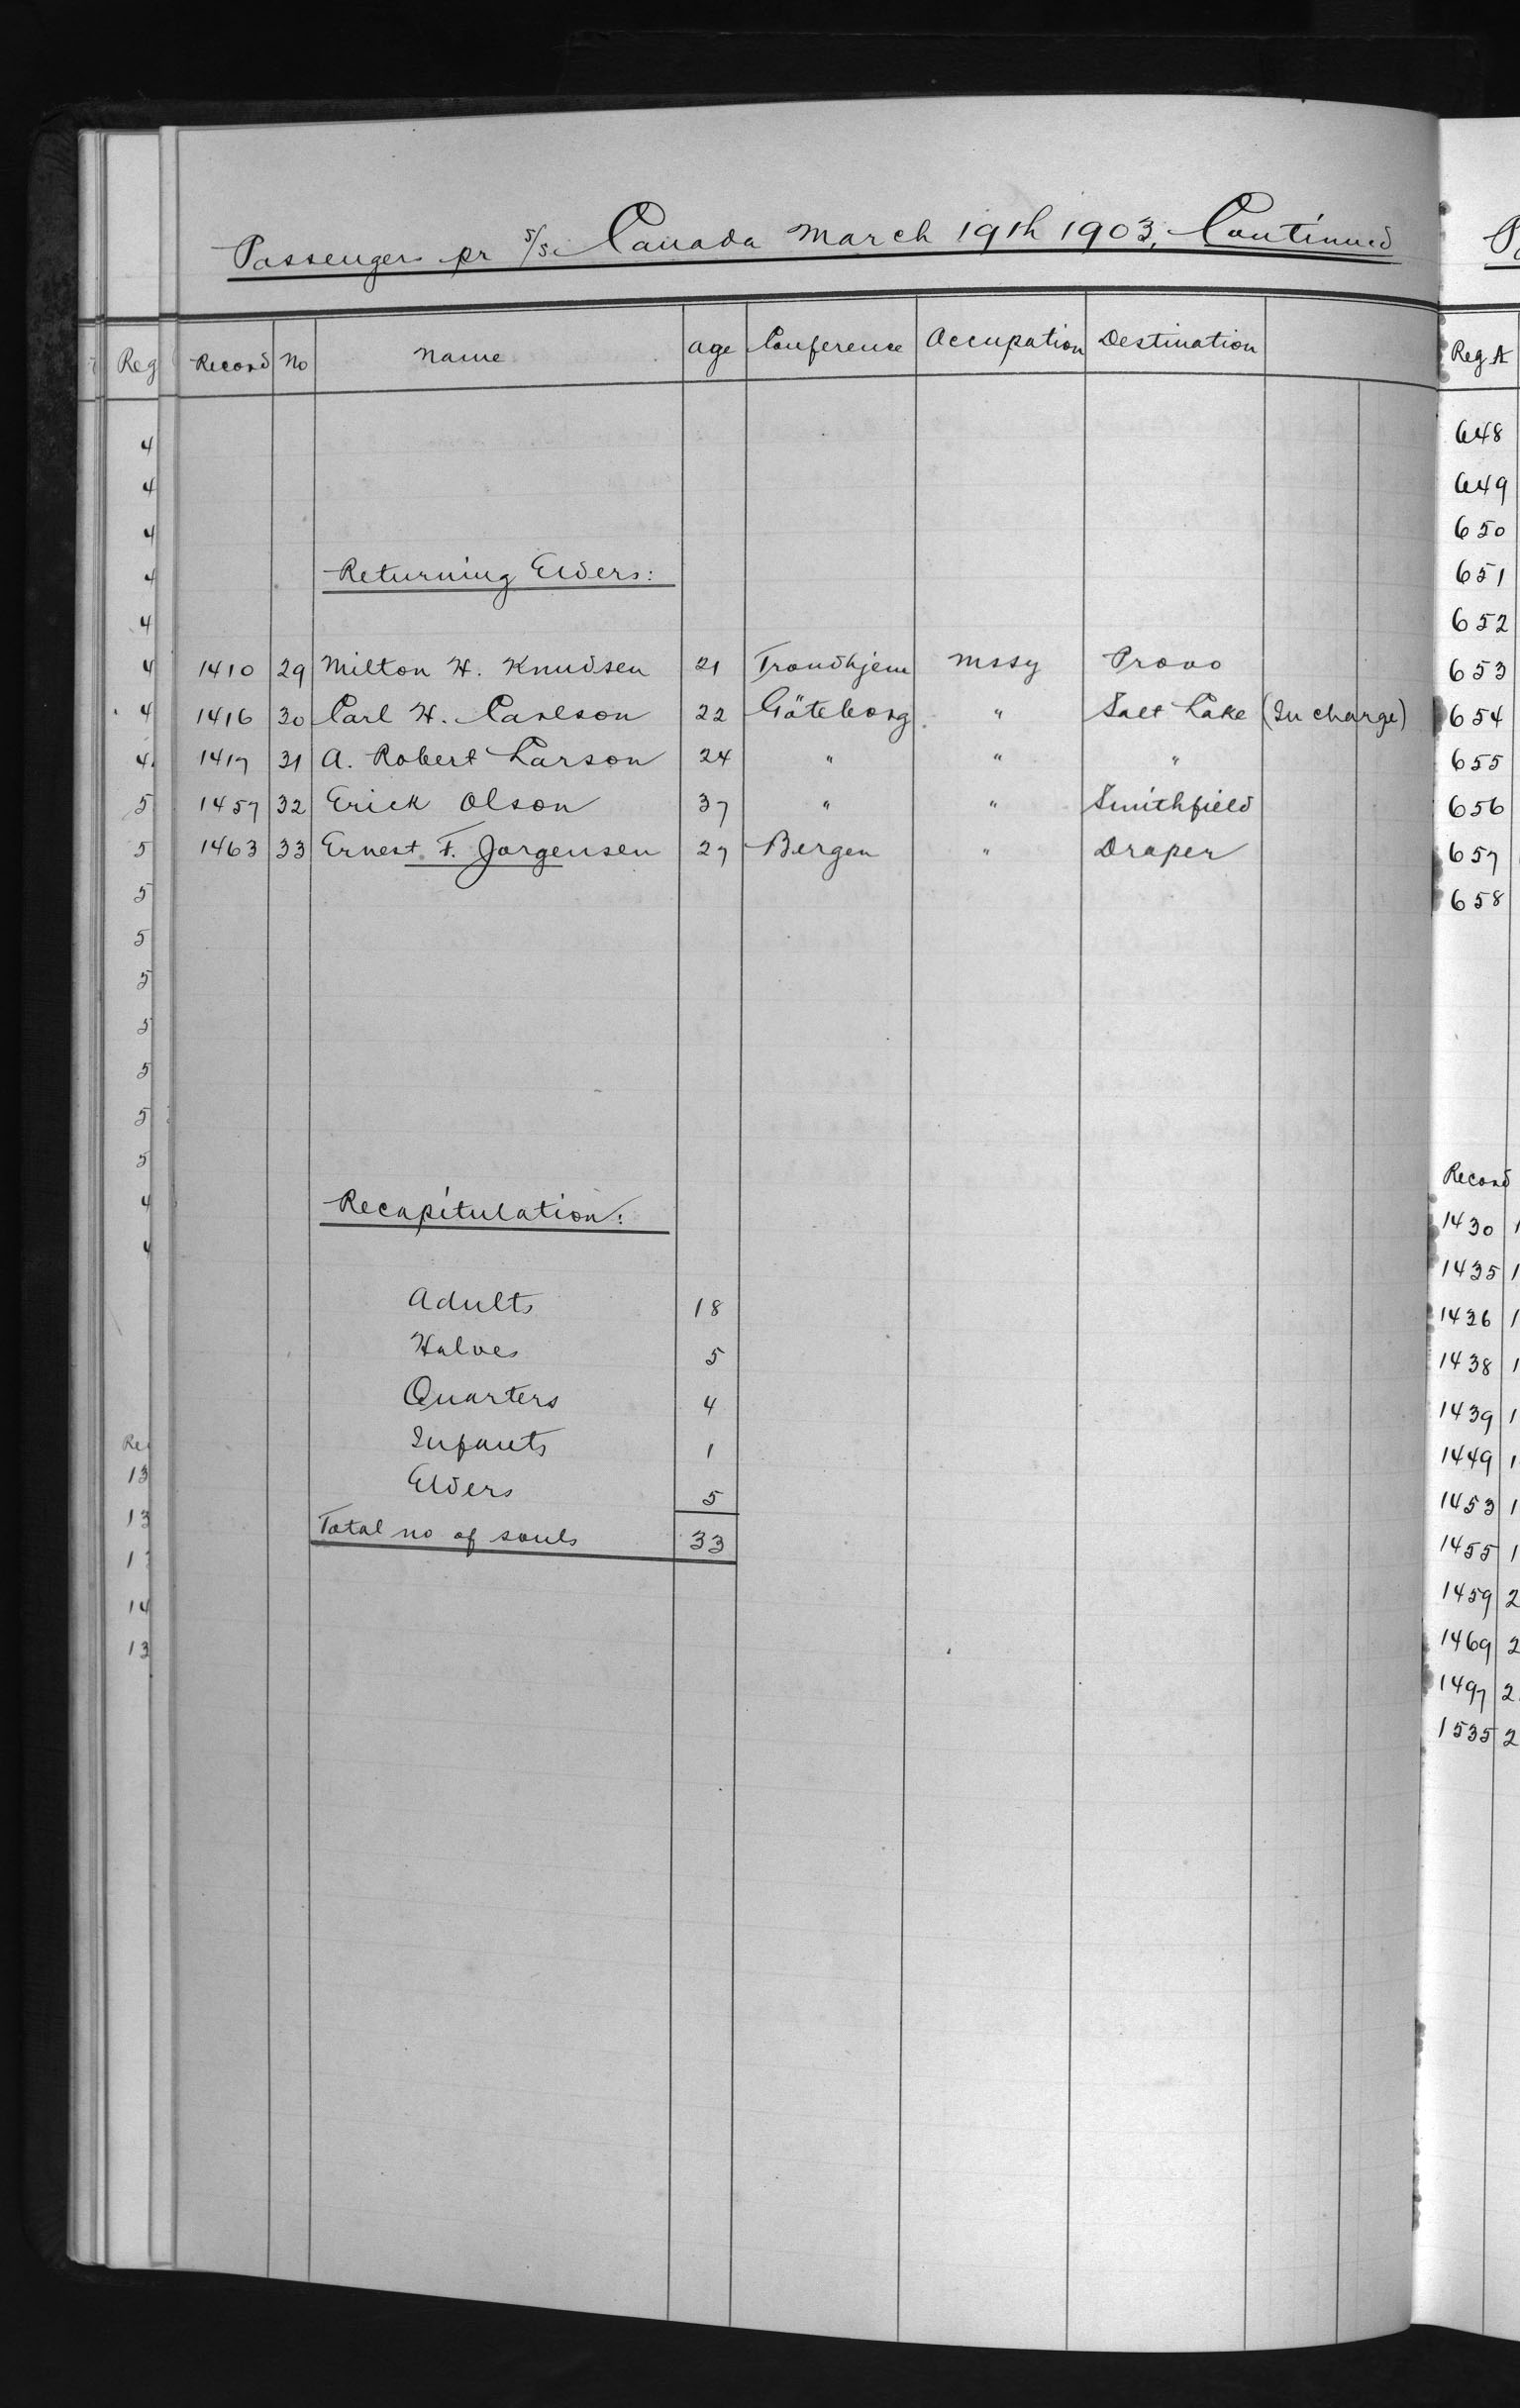 Passengers pr S/S. Canada March 19th 1903, Continued
Record No Name Age Conference Occupation Destination
Returning Elders:
1410 29 Milton H. Knudsen 21 Trondhjem Mssy Provo
1416 30 Carl H. Carlson 22 Göteborg " Salt Lake (In charge)
1417 31 A. Robert Larson 24 " " "
1457 32 Erick Olson 37 " " Smithfield
1463 33 Ernest F. Jorgensen 27 Bergen " Draper
Recapitulation:
Adults 18
Halves 5
Quarters 4
Infants 1
Elders 5
Total no of souls 33
Reg
4
4
4
4
4
4
4
4
5
5
5
5
5
5
5
5
5
4
4
13
13
14
13
Reg A
648
649
650
651
652
653
654
655
656
657
658
Record
1430 1
1435 1
1436 1
1438 1
1439 1
1449 1
1453 1
1455 1
1459 2
1469 2
1497 2
1535 2